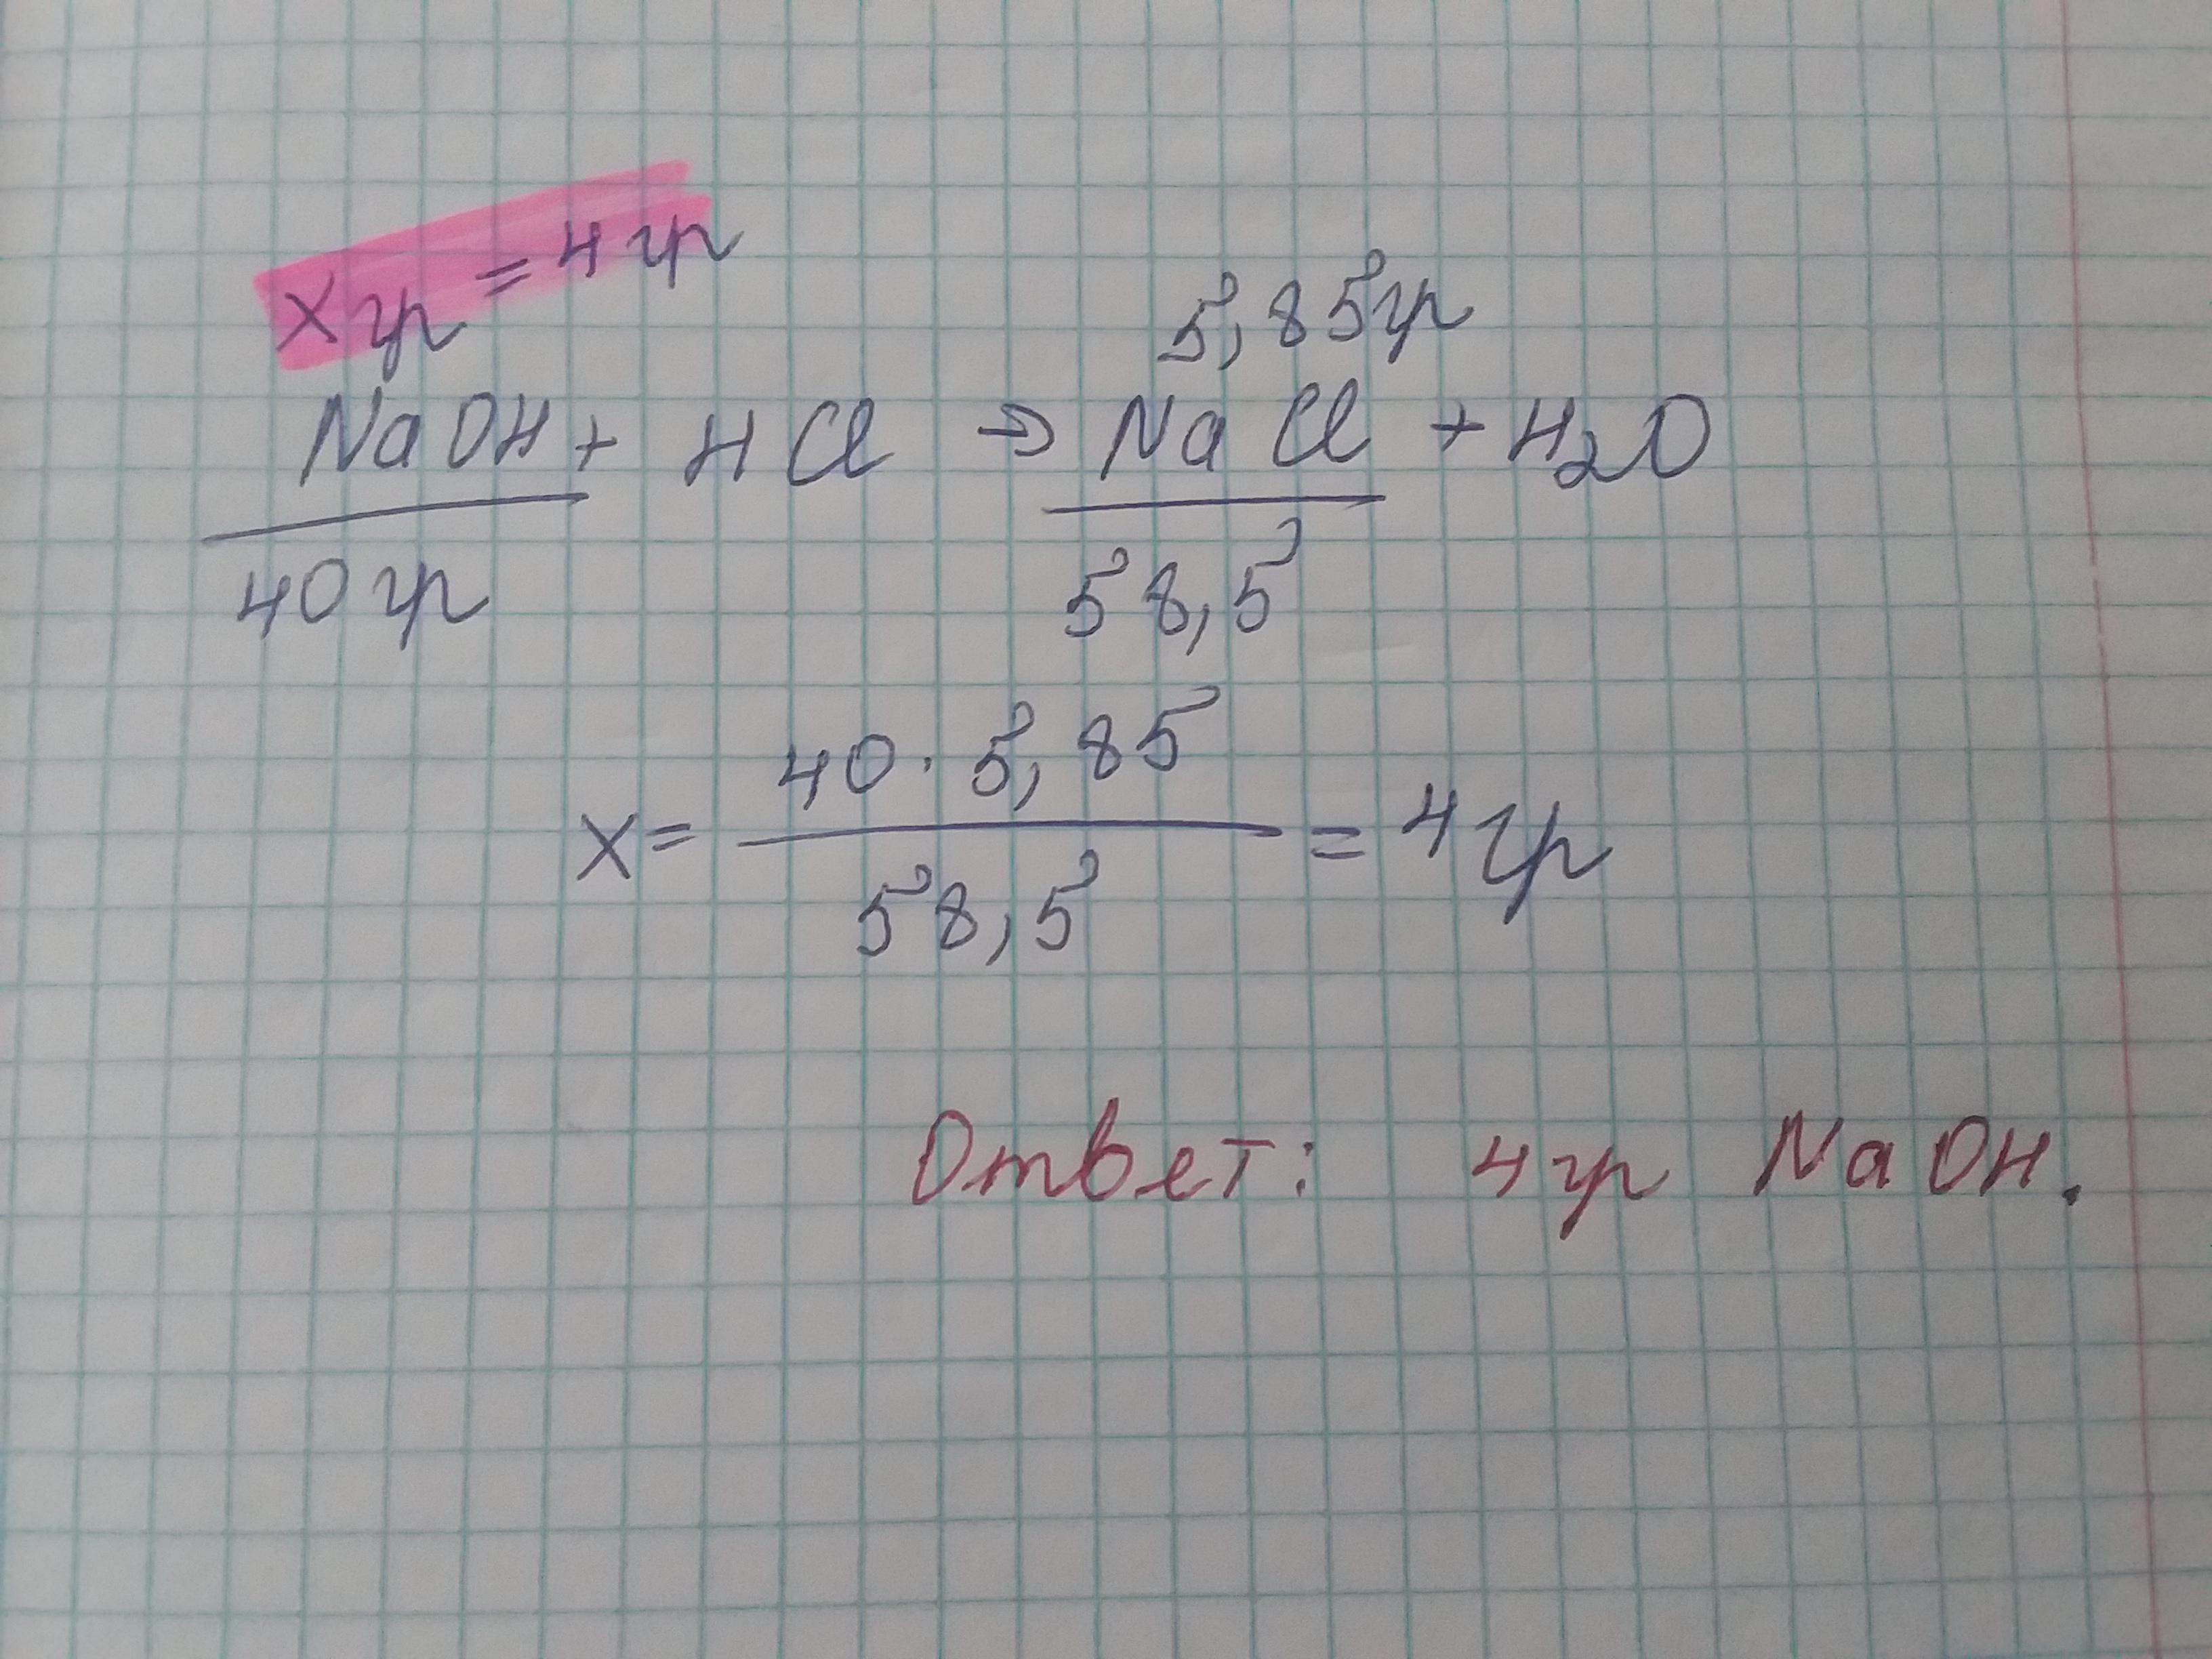 x гр = 4 гр
5,85 гр
NaOH + HCl → NaCl + H₂O
40 гр 58,5
x = 40 · 5,85 / 58,5 = 4 гр
Ответ: 4 гр NaOH.